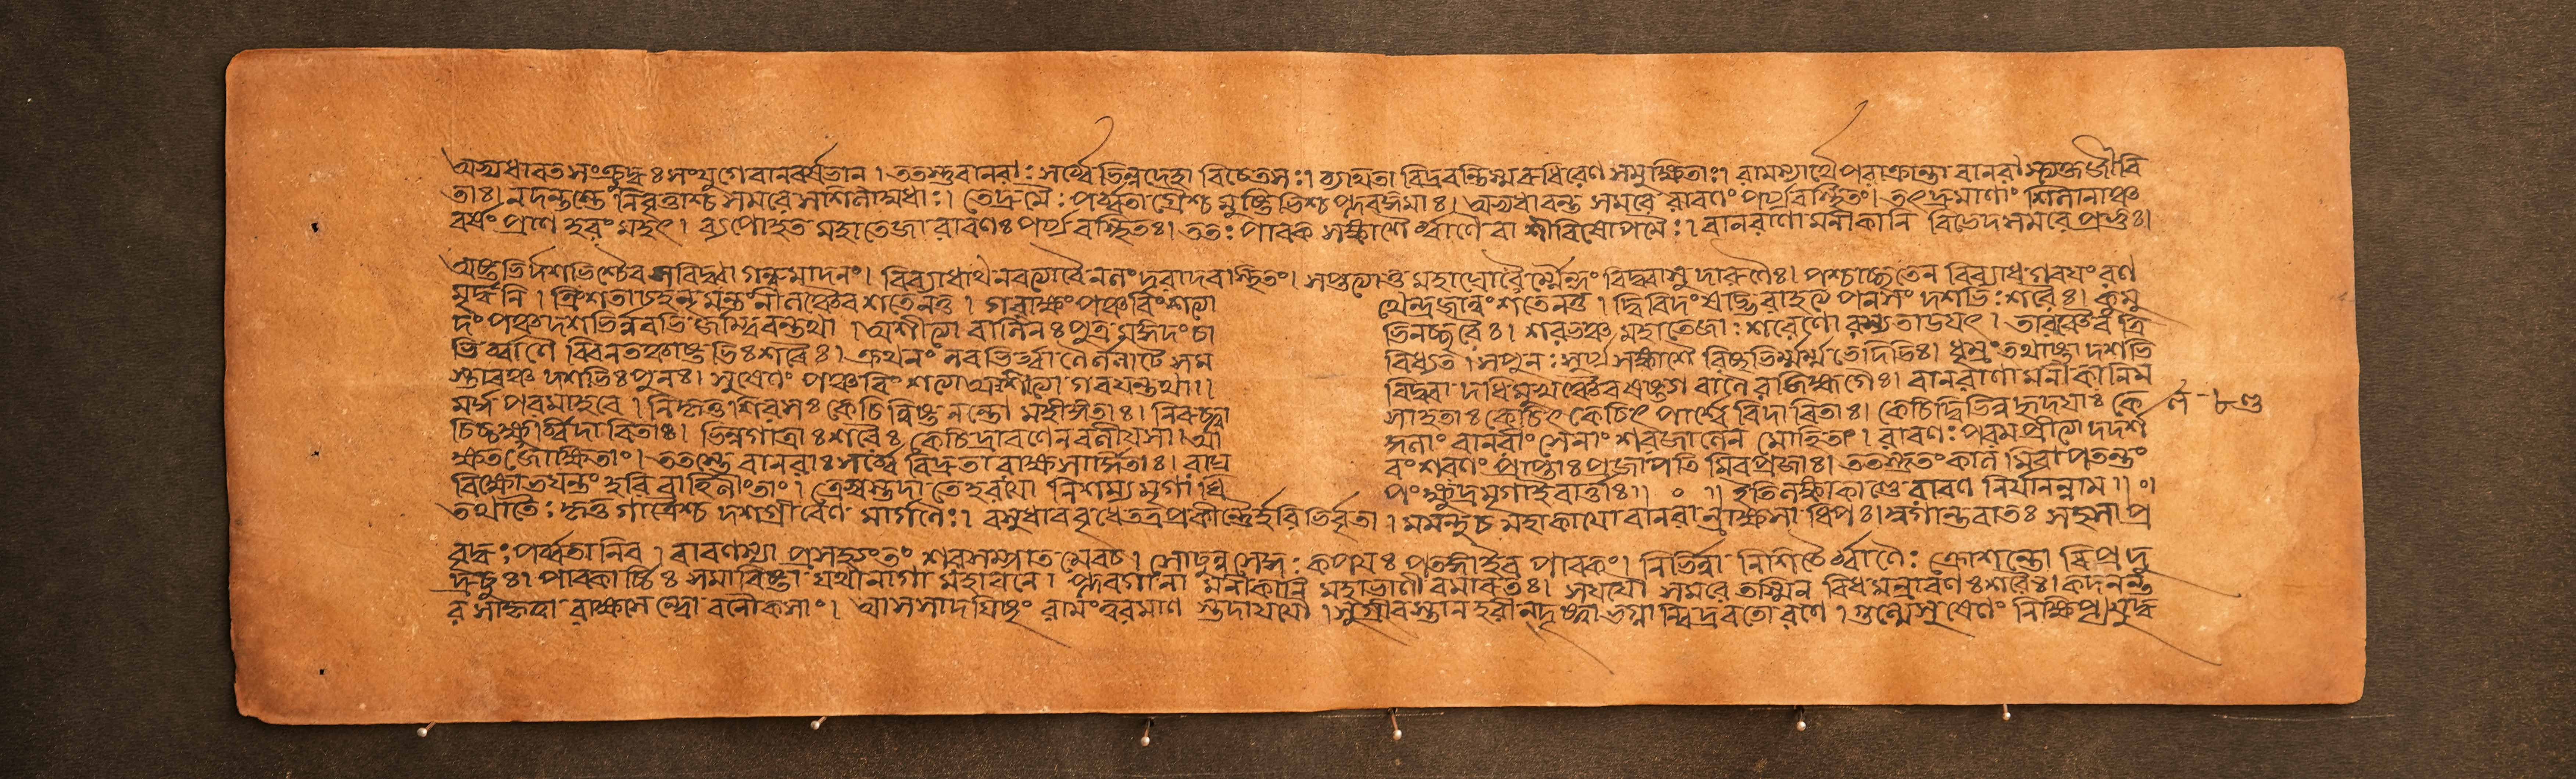 অভ্যধাবত সংক্রুদ্ধঃ সংযুগে বানরর্ষভান । ততস্তু বানরাঃ সর্ব্বে ভিন্নদেহা বিচেতসঃ । ব্যাযতা বিদ্রবন্তিস্ম রুধিরেণ সমুক্ষিতাঃ । রামস্যার্থে পরাক্রান্তা বানরা স্ত্যক্তজীবি
তাঃ । নদন্তস্তে নিবৃত্তাশ্চ সমরে সশিলাযুধাঃ । তেদ্রুমৈঃ পর্ব্বতাগ্রৈশ্চ মুষ্টিভিশ্চ প্লবঙ্গমাঃ । অভ্যধাবন্ত সমরে রাবণং পর্য্যবস্থিতং । তৎদ্রুমাণাং শিলানাঞ্চ
বর্ষং প্রাণহরং মহৎ । ব্যপোহত মহাতেজা রাবণঃ পর্য্যবস্থিতঃ । ততঃ পাবক সঙ্কাশৈ র্ব্বাণৈ রাশীবিষোপমৈঃ । বানরাণামনীকানি বিভেদ সমরে প্রভুঃ ।
অষ্টভির্দশভিশ্চৈব স বিদ্ধ্বা গন্ধমাদনং । বিব্যাধাথ নবত্যাবৈ নলং দূরাদবস্থিতং । সপ্তত্যাতু মহাঘোরৈ র্ম্মৈন্দং বিদ্ধ্বাসু দারুণৈঃ । পশ্চাচ্ছতেন বিব্যাধ গবযং রণ
মূর্দ্ধনি । ত্রিংশতাচ হনূমন্তং নীলঞ্চৈব শতেনতু । গবাক্ষং পঞ্চবিংশত্যা
থেন্দ্রজালং শতেনতু । দ্বিবিদং ষষ্টিরাহত্য পনসং দশভিঃ শরৈঃ । কুমু
দং পঞ্চদশভির্ন্নবভি র্জাম্ববন্তথা । অশীত্যা বালিনঃ পুত্র মঙ্গদং চা
ভিনচ্ছরৈঃ । শরভঞ্চ মহাতেজাঃ শরেণো রস্যতাডযৎ । তারঞ্চৈব ত্রি
ভির্ব্বাণৈ র্ব্বিনতঞ্চাষ্টভিঃ শরৈঃ । ক্রথনং নবভির্ব্বাণৈ র্ললাটে সম
বিধ্যত । সপুনঃ সূর্য্যসঙ্কাশৈ র্বিচ্ছভির্ম্মর্ম্ম ভেদিভিঃ । ধূম্রং তথাষ্টা দশভি
স্তারঞ্চ দশভিঃ পুনঃ । সুষেণং পঞ্চবিংশত্যা অশীত্যা গবযন্তথা ।।
বিদ্ধ্বা দধিমুখঞ্চৈব বানরাণামনীকানিস
মর্দ্দ পরমাহবে । নিকৃত্ত শিরসঃ কেচি দ্বিষ্টনন্তো মহীঙ্গতাঃ । নিরুচ্ছ্বা
সাহতাঃ কেচিৎ কেচিৎ পার্শ্বে বিদারিতাঃ । কেচিদ্বিভিন্ন হৃদযাঃ কে
চিচ্চক্ষুর্ব্বিদারিতাঃ । ভিন্নগাত্রাঃ শরৈঃ কেচিদ্রাবণেন বলীযসা । তাং
ঙ্গনাং বানরীং সেনাং শরজালেন মোহিতাং । রাবণঃ পরমপ্রীত্যা দদর্শ
ক্ষতজোক্ষিতাং । ততস্তে বানরাঃ সর্ব্বে বিদ্রুতা রাক্ষসার্দ্দিতাঃ । রাঘ
বং শরণং প্রাপ্তাঃ প্রজাপতি মিবপ্রজাঃ । ততস্তুতং কাল মিবা পতন্তং
বিক্ষোভযন্তং হরি বাহিনীংতাং । ত্রেসুস্তদা তেহরযো নিশম্য মৃগা দ্বি
পং ক্ষুদ্রমৃগাইবার্ত্তাঃ ।। ০ ।। ইতি লঙ্কাকাণ্ডে রাবণ নির্যানন্নাম ।। ০।
তথাতৈঃ কৃত্ত গাত্রৈশ্চ দশগ্রীবেণ মার্গণৈঃ । বসুধাবরৃধেতত্র প্রকীর্ণৈর্হরিভির্বৃতা । মমন্দুচ মহাকাযো বানরা ন্রাক্ষসা ধিপঃ । মগান্তবাতঃ সহসা প্র
বৃদ্ধঃ পর্ব্বতানিব । রাবণস্যা প্রসহ্যংতং শরসম্পাত মেবচ । সোঢুন্ন সেহুঃ কপযঃ পতঙ্গাইব পাবকং । নির্ভিন্না নিশিতৈ র্ব্বাণৈঃ ক্রোশন্তো বিপ্রদু
দ্রুবুঃ । পাবকার্চ্চিঃ সমাবিষ্টা যথানাগা মহাবনে । প্লবগানা মনীকানি মহাভ্রাণী বমারুতঃ । সযযৌ সমরে তস্মিন বিধমন্রাবণঃ শরৈঃ । কদনন্ত
র সাকৃত্বা রাক্ষসেন্দ্রো বনৌকসাং । আসসাদ যিষ্টং রামং ত্বরমাণ স্তদাযযৌ । সুগ্রীবস্তান হরীন্দৃষ্ট্বা ভগ্নান্বিদ্রবতো রণে । গুল্মেসুষেণং নিক্ষিপ্য যুদ্ধ